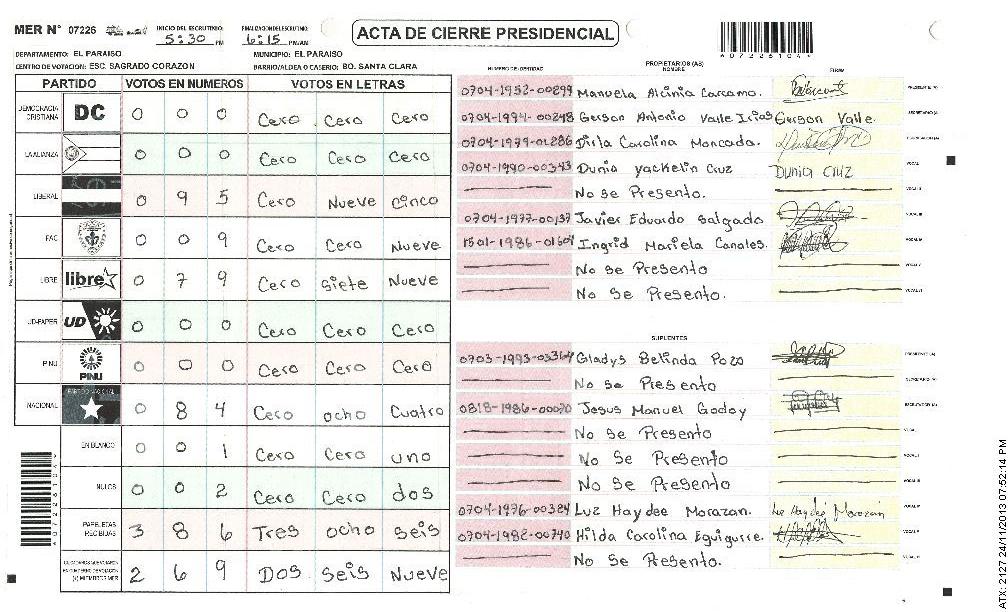 MER N° 07226
INICIO DEL ESCRUTINIO: 5:30 PM
FINALIZACION ESCRUTINIO: 6:15 PM/AM
ACTA DE CIERRE PRESIDENCIAL
DEPARTAMENTO: EL PARAISO
MUNICIPIO: EL PARAISO
CENTRO DE VOTACION: ESC. SAGRADO CORAZON
BARRIO/ALDEA O CASERIO: BO. SANTA CLARA
PARTIDO VOTOS EN NUMEROS VOTOS EN LETRAS
DEMOCRACIA CRISTIANA DC 0 0 0 Cero Cero Cero
LA ALIANZA 0 0 0 Cero Cero Cero
LIBERAL 0 9 5 Cero Nueve Cinco
FAC 0 0 9 Cero Cero Nueve
LIBRE libre 0 7 9 Cero siete Nueve
UD-FAPER UD 0 0 0 Cero Cero Cero
PINU PINU 0 0 0 Cero Cero Cero
NACIONAL PARTIDO NACIONAL 0 8 4 Cero ocho Cuatro
EN BLANCO 0 0 1 Cero Cero uno
NULOS 0 0 2 Cero Cero dos
PAPELETAS RECIBIDAS 3 8 6 Tres ocho seis
2 6 9 Dos seis Nueve
NUMERO DE IDENTIDAD PROPIETARIOS (AS) NOMBRE FIRMA
0704-1952-00299 Manuela Alcinia Carcamo.
0704-1994-00248 Gerson Antonio Valle Irias Gerson Valle.
0704-1979-01286 Dirla Carolina Moncada.
0704-1990-00343 Dunia yackelin Cruz DUNIA CRUZ
No se Presento.
0704-1977-00137 Javier Eduardo Salgado
1501-1986-01604 Ingrid Mariela Canales.
No se Presento
No Se Presento.
SUPLENTES
0703-1993-03364 Gladys Belinda Pozo
No se Presento
0818-1986-00070 Jesus Manuel Godoy
No Se Presento
No Se Presento
No Se Presento
0704-1976-00384 Luz Haydee Morazan. Luz Haydee Morazan
0704-1982-00740 Hilda Carolina Eguigurre.
No Se Presento.
ATX: 2127 24/11/2013 07:52:14 PM